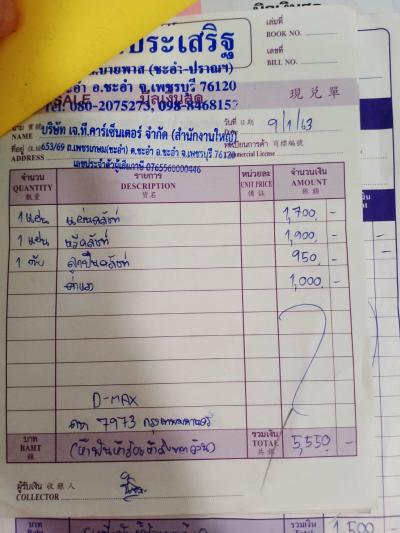 เล่มที่
BOOK NO.
ประเสริฐ
เลขที่
BILL NO.
(ชะอำ-ปราณฯ)
อ.ชะอำ จ.เพชรบุรี 76120
โทร. 080-2075273, 098-8468152
SALE
บิลเงินสด
現兌單
NAME
บริษัท เจ.ที.คาร์เซ็นเตอร์ จำกัด (สำนักงานใหญ่)
วันที่ 日期
Date
9/1/63
ที่อยู่
ADDRESS
653/69 ถ.เพชรเกษม(ชะอำ) ต.ชะอำ อ.ชะอำ จ.เพชรบุรี 76120
ทะเบียนการค้า 商標編號
Commercial License
เลขประจำตัวผู้เสียภาษี 0765560000446
จำนวน
QUANTITY
數量
รายการ
DESCRIPTION
貨名
หน่วยละ
UNIT PRICE
จำนวนเงิน
AMOUNT
1 แผ่น แผ่นคลัทช์ 1,700 -
1 แผ่น หวีคลัทช์ 1,900 -
1 ตับ ลูกปืนคลัทช์ 950 -
ค่าแรง 1,000 -
D-MAX
7973 กรุงเทพมหานคร
บาท
BAHT
(ห้าพันห้าร้อยห้าสิบบาทถ้วน)
รวมเงิน
TOTAL
5,550 -
ผู้รับเงิน 收銀人
COLLECTOR
บาท
Baht
รวมเงิน
Total
1,500 -